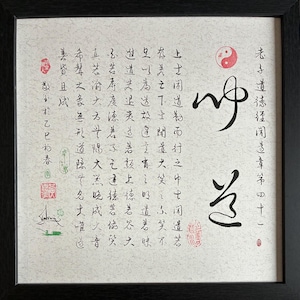 老子道德經聞道章第四十一
聞道
上士聞道勤而行之中士聞道若
存若亡下士聞道大笑之不笑不
足以為道故建言有之明道若昧
進道若退夷道若纇上德若谷大
白若辱廣德若不足建德若偷質
真若渝大方無隅大器晚成大音
希聲大象無形道隱無名夫唯道
善貸且成
於乙巳初春